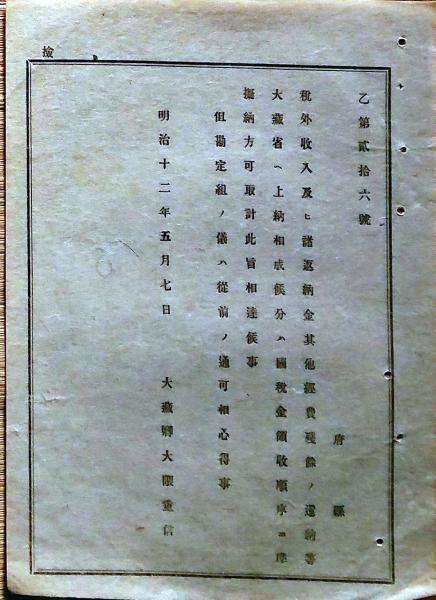 乙第貳拾六號
府縣
稅外收入及ヒ諸返納金其他經費殘餘ノ還納等
大藏省ヘ上納相成候分ハ國稅金領收順序ニ準
據納方可取計此旨相達候事
但勘定組ノ儀ハ從前ノ通可相心得事
明治十二年五月七日 大藏卿大隈重信
檢